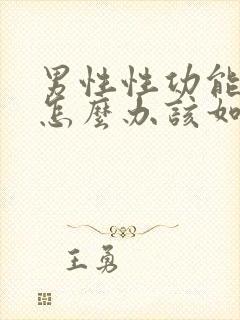 男性性功能
怎麼办該如
王勇